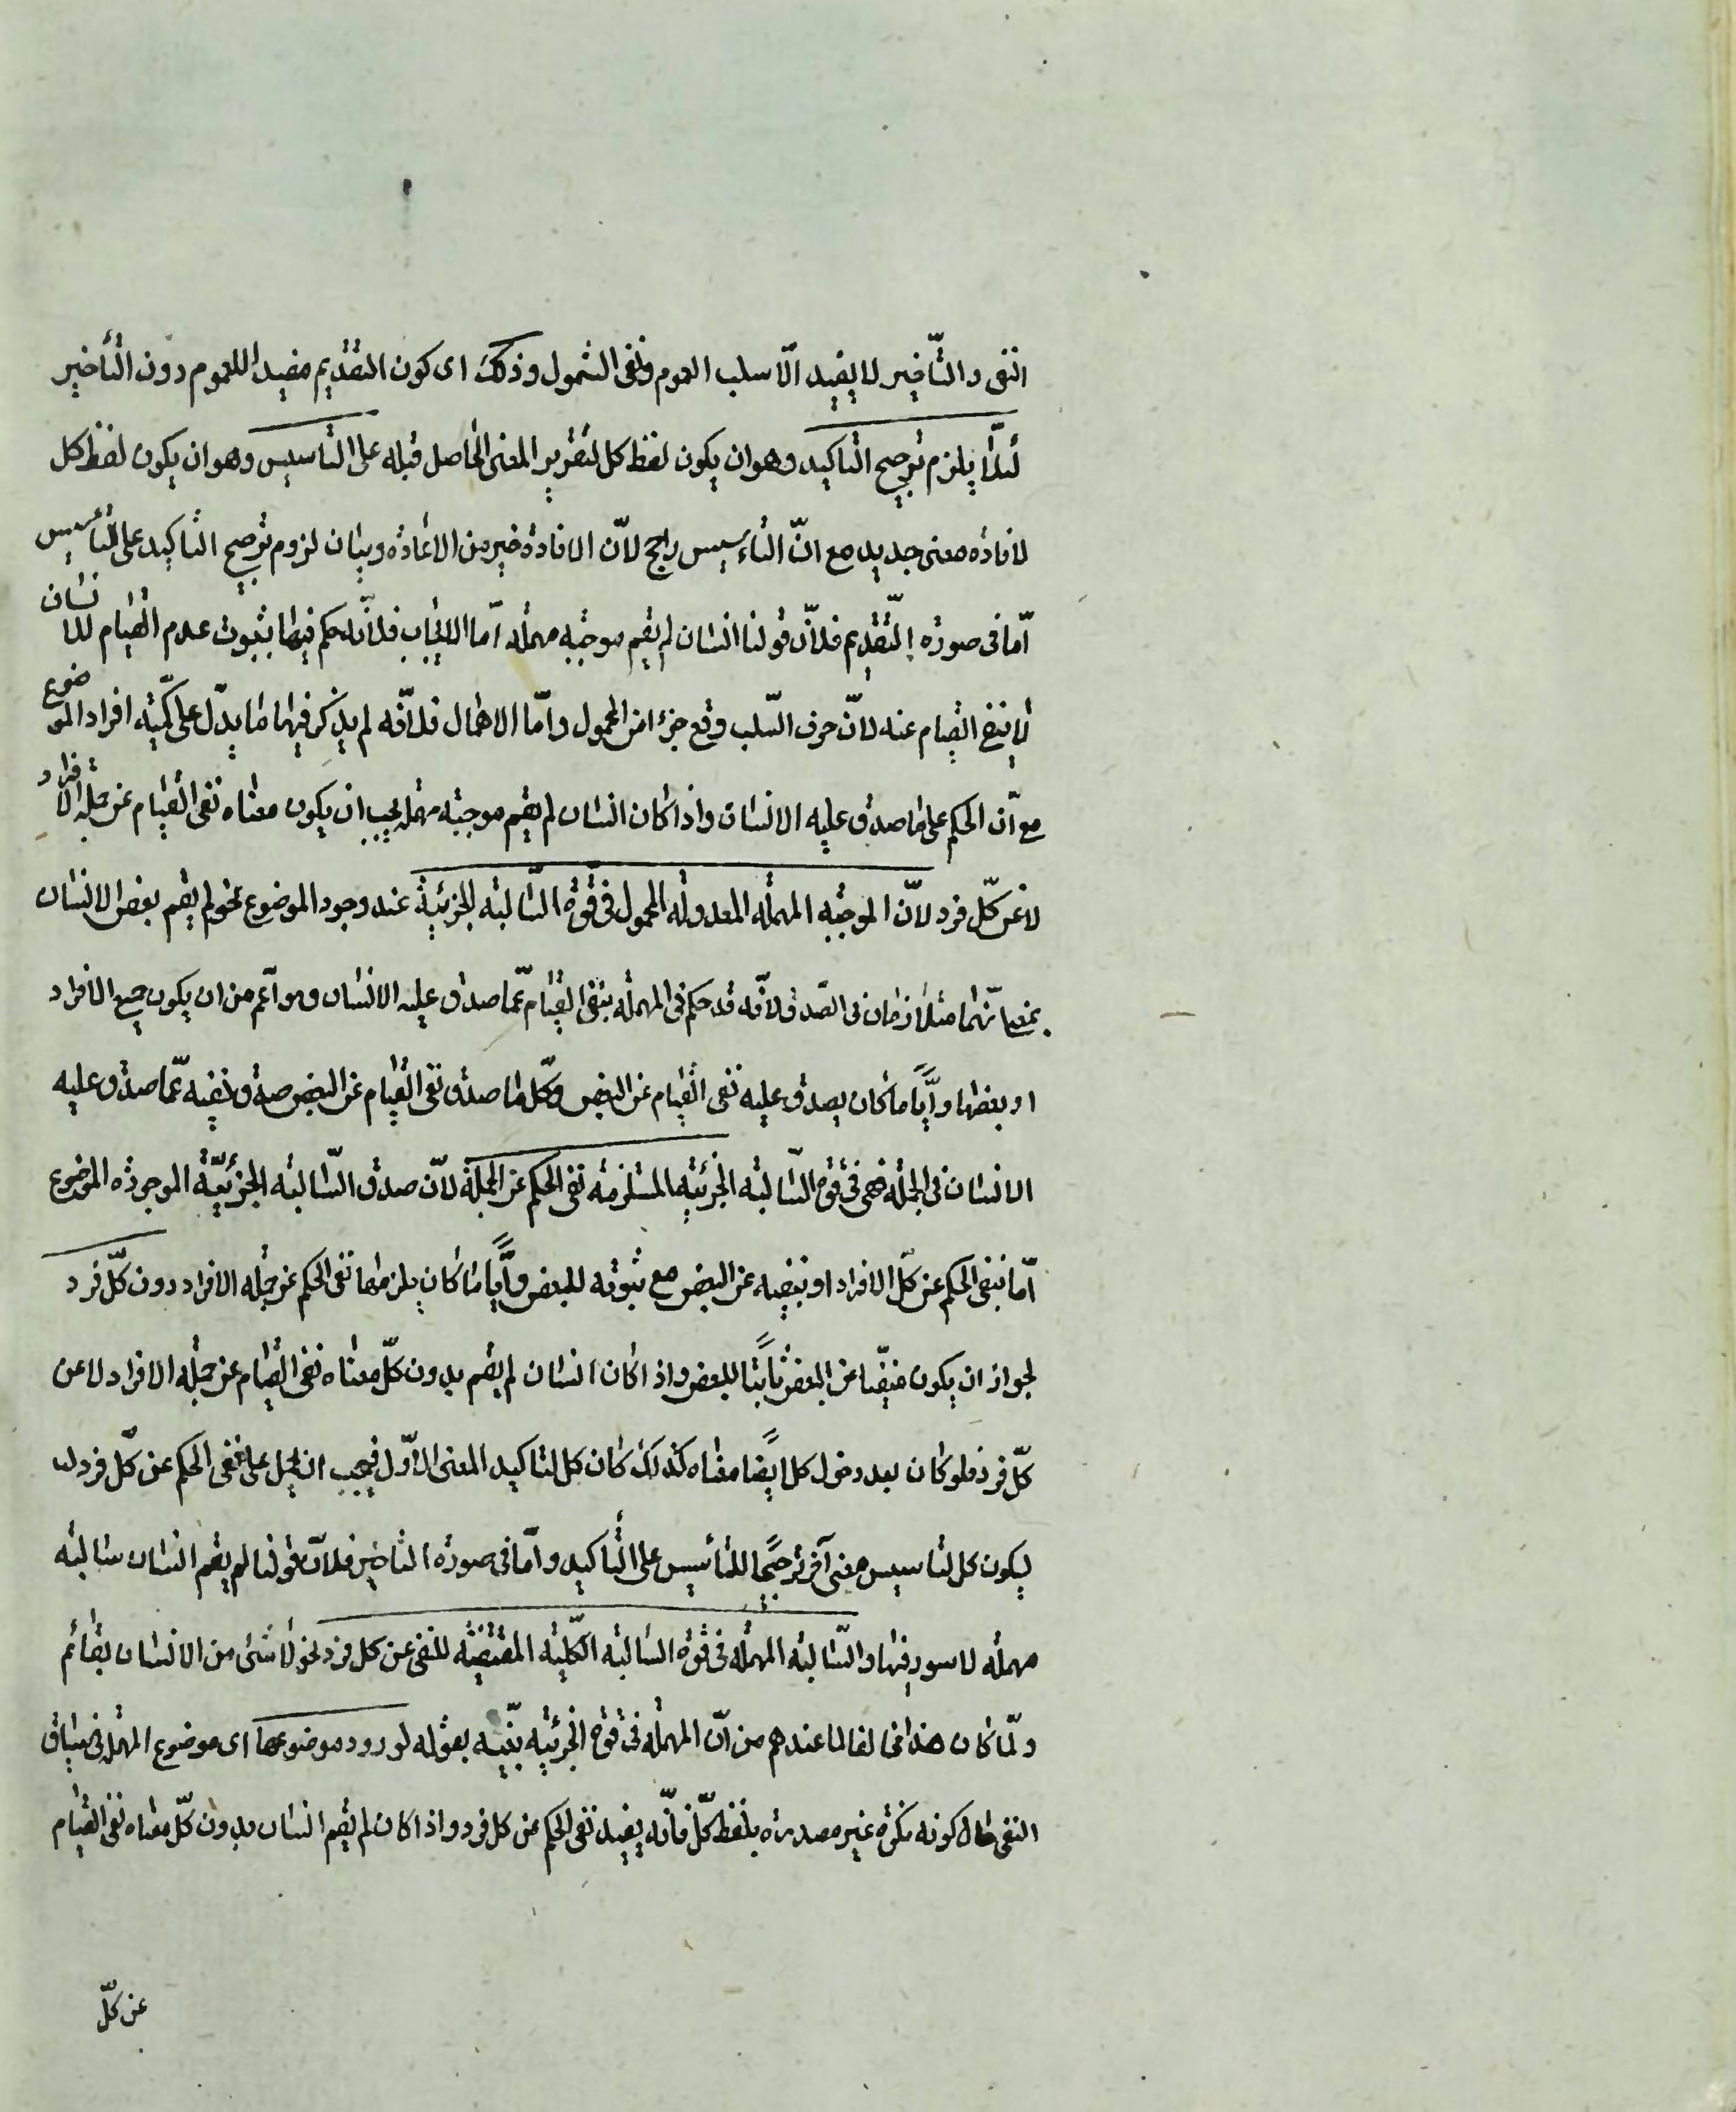 النفى والتّأخير لا يفيد الّا سلب العموم ونفى الشمول وذلك اى كون التقديم مفيدا للعموم دون التأخير
لئلّا يلزم ترجيح التاكيد وهو ان يكون لفظ كل لتقرير المعنى الحاصل قبله على التأسيس وهو ان يكون لفظ كل
لافاده معنى جديد مع انّ التاءسيس راجح لانّ الافادة خير من الاعاده وبيان لزوم ترجيح التاكيد على التأسيس
امّا فى صوره التّقديم فلانّ قولنا انسان لم يقم موجبه مهمله امّا الايجاب فلانّه حكم فيها بثبوت عدم القيام للانسان
لا بنفى القيام عنه لانّ حرف السّلب وقع جزءا من المحمول وامّا الاهمال فلانّه لم يذكر فيها ما يدلّ على كمّيّه افراد الموضوع
مع انّ الحكم على ما صدق عليه الانسان واذا كان انسان لم يقم موجبه مهمله يجب ان يكون معناه نفى القيام عن جمله الافراد
لا عن كلّ فرد لانّ الموجبه المهمله المعدوله المحمول فى قوّة السّالبه الجزئية عند وجود الموضوع نحو لم يقم بعض الانسان
بمعنى انّهما متلازمان فى الصّدق لانّه قد حكم فى المهمله بنفى القيام عمّا صدق عليه الانسان وهو اعم من ان يكون جميع الافراد
او بعضها وايّاً ما كان يصدق عليه نفى القيام عن البعض وكلّ ما صدق نفى القيام عن البعض صدق نفيه عمّا صدق عليه
الانسان فى الجمله فهى فى قوّه السّالبه الجزئيه المستلزمه نفى الحكم عن الجملة لانّ صدق السّالبه الجزئيّة الموجوده الموضوع
امّا بنفى الحكم عن كلّ الافراد او نفيه عن البعض مع ثبوته للبعض وايّاً ما كان يلزمها نفى الحكم عن جمله الافراد دون كلّ فرد
لجواز ان يكون منفيّا عن البعض ثابتًا للبعض واذا كان انسان لم يقم بدون كلّ معناه نفى القيام عن جمله الافراد لا عن
كلّ فرد فلو كان بعد دخول كل ايضاً معناه كذلك كان كل لتاكيد المعنى الاوّل فيجب ان يحمل على نفى الحكم عن كلّ فرد
ليكون كل لتاسيس معنى آخر ترجيحًا للتأسيس على التأكيد وامّا فى صوره التاخير فلانّ قولنا لم يقم انسان سالبه
مهمله لا سور فيها والسّالبه المهمله فى قوّه السالبه الكلّيه المقتضيه للنفى عن كل فرد نحو لا شىء من الانسان بقائم
ولمّا كان هذا مخالفا لما عندهم من انّ المهمله فى قوّه الجزئيه بيّنه بقوله لورود موضوعها اى موضوع المهمله فى سياق
النفى حال كونه نكره غير مصدره بلفظ كلّ فانّه يفيد نفى الحكم عن كل فرد واذا كان لم يقم انسان بدون كلّ معناه نفى القيام
عن كلّ